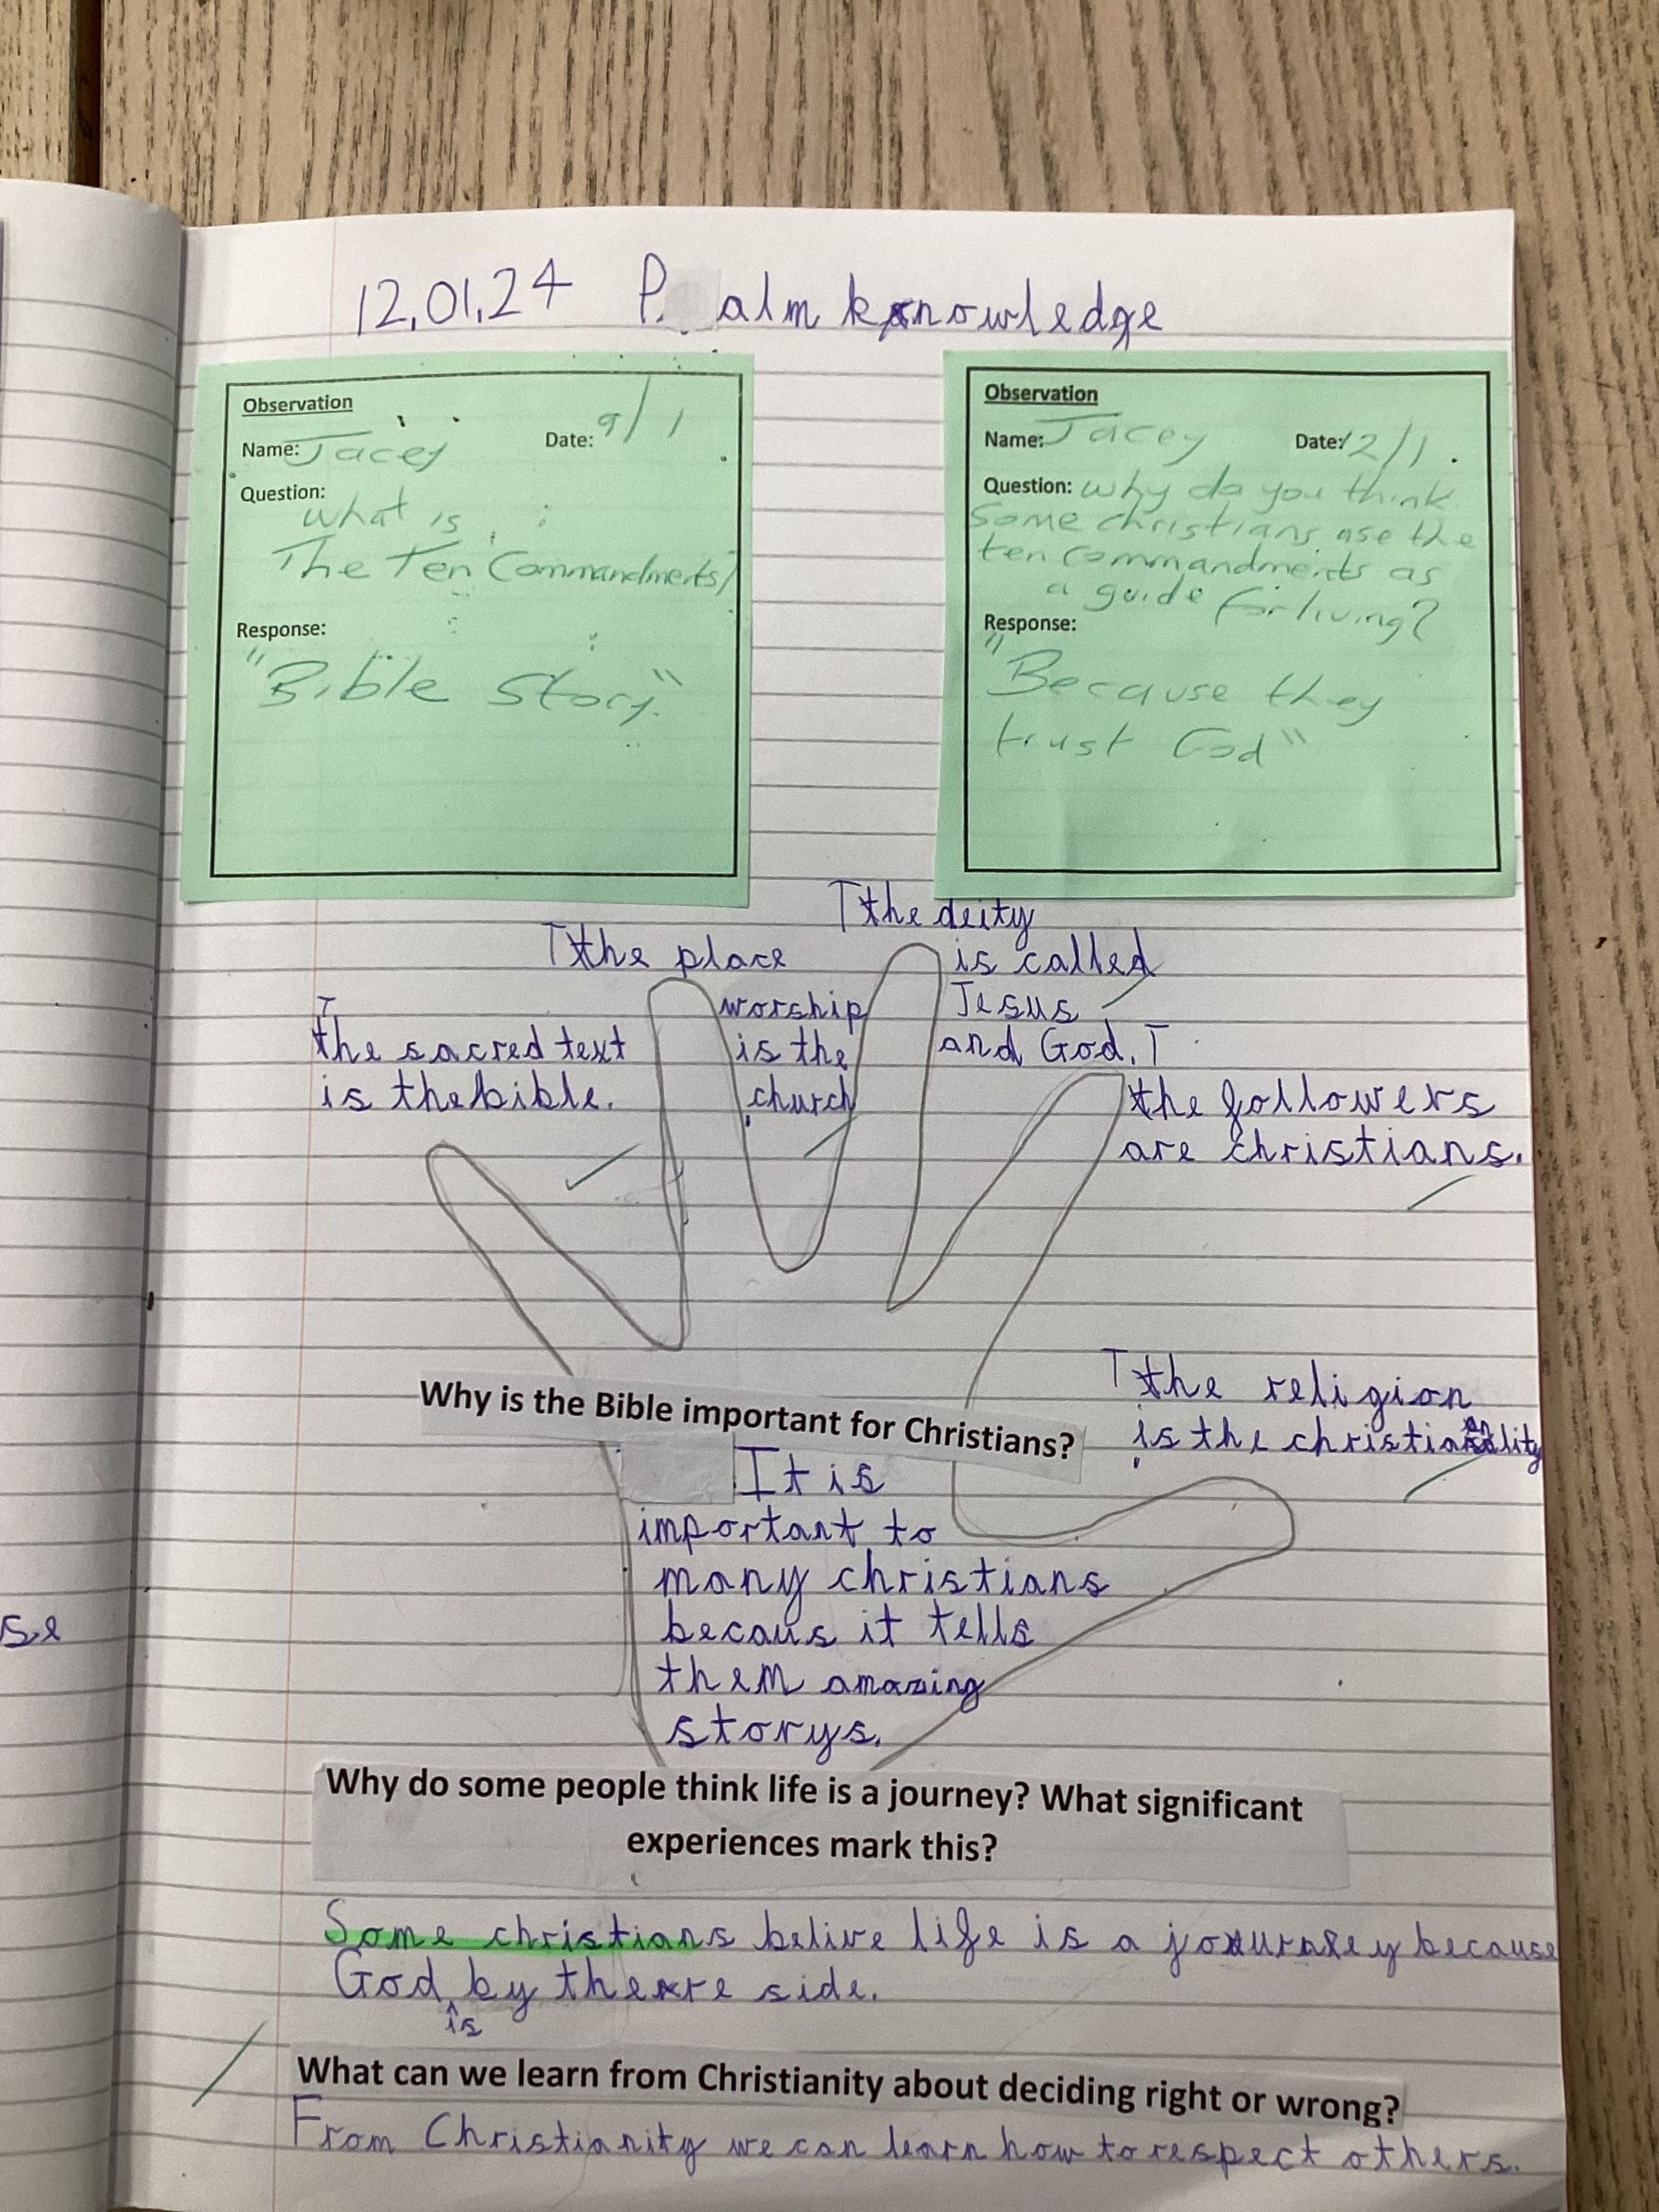 12.01.24 P. alm knowledge
Observation
Name: Jacey Date: 9/1
Question:
what is
The Ten Commandments
Response:
"Bible Story."
Observation
Name: Jacey Date: 12/1
Question: why do you think
some christians use the
ten commandments as
a guide for living?
Response:
"Because they
trust God"
The sacred text
is the bible.
The place
worship
is the
church
The deity
is called
Jesus
and God.
The followers
are christians.
The religion
is the
Why is the Bible important for Christians?
It is
important to
many christians
becaus it tells
them amazing
storys.
Why do some people think life is a journey? What significant
experiences mark this?
Some christians belive life is a journey because
God is by there side.
What can we learn from Christianity about deciding right or wrong?
From Christianity we can learn how to respect others.
se